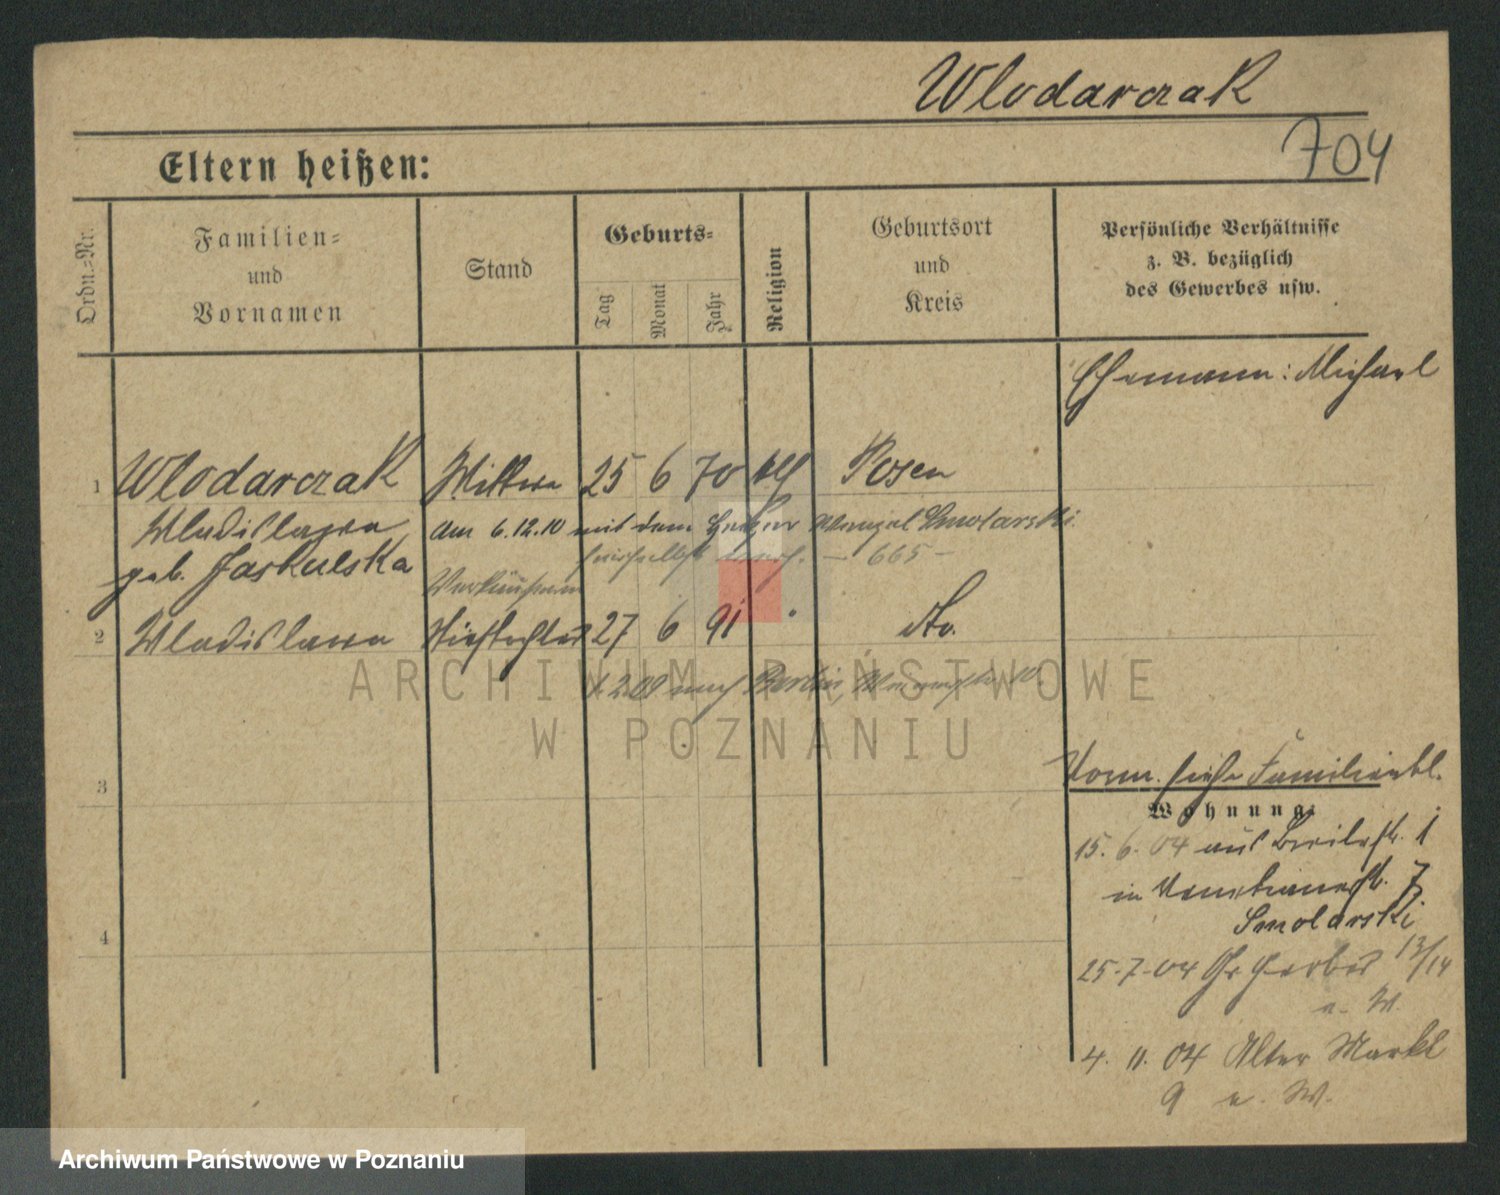 Wlodarczak
704
Eltern heißen:
Ordn.-Nr.
Familien-
und
Vornamen
Stand
Geburts-
Tag
Monat
Jahr
Religion
Geburtsort
und
Kreis
Persönliche Verhältnisse
z. B. bezüglich
des Gewerbes usw.
Ehemann: Michael
1 Wlodarczak Wittwe 25 6 70 Posen
Wladislawa am 6.12.10 mit dem Wenzel Smolarski
geb. Jaskulska 665
Verkäuferin
2 Wladislawa 27 6 91 " dto.
nach Berlin,
3
Vorm. siehe Familienbl.
Wohnung:
15. 6. 04 aus Breitestr. 1
in Venetianerstr. 7
Smolarski
4
25.7.04 Gr Gerber 13/14
a. W.
4. 11. 04 Alter Markt
9 a. W.
ARCHIWUM PAŃSTWOWE
W POZNANIU
Archiwum Państwowe w Poznaniu